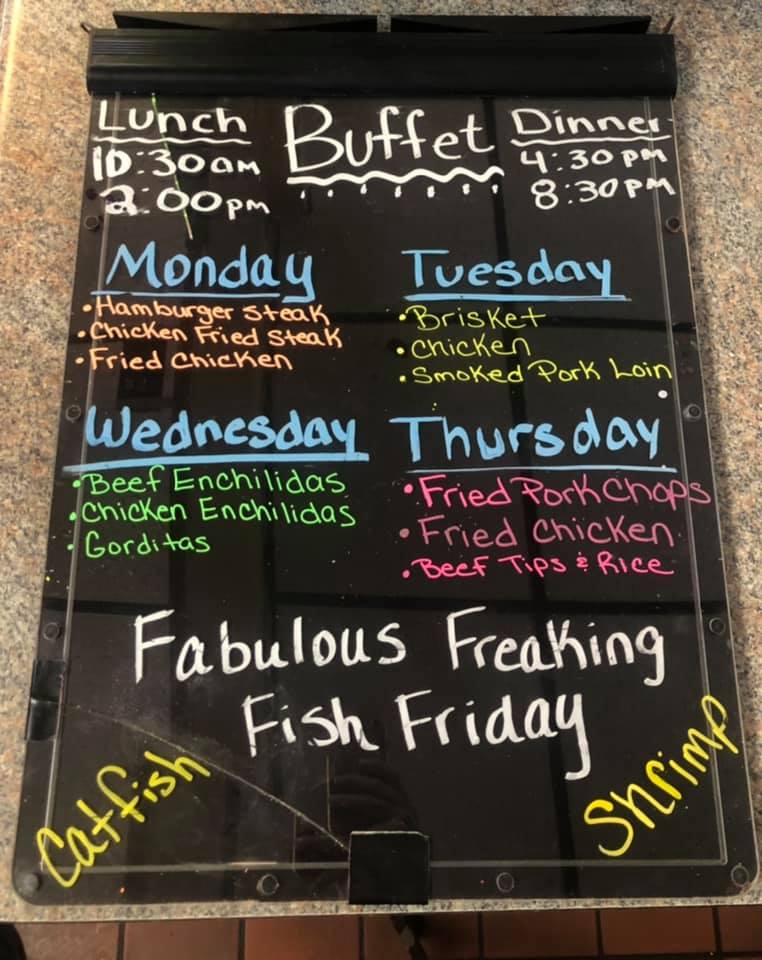 Lunch Buffet Dinner
10:30am 4:30pm
2:00pm 8:30pm
Monday
• Hamburger Steak
• Chicken Fried Steak
• Fried Chicken
Tuesday
• Brisket
• Chicken
• Smoked Pork Loin
Wednesday
• Beef Enchilidas
• Chicken Enchilidas
• Gorditas
Thursday
• Fried Pork Chops
• Fried Chicken
• Beef Tips & Rice
Fabulous Freaking
Fish Friday
Catfish
Shrimp